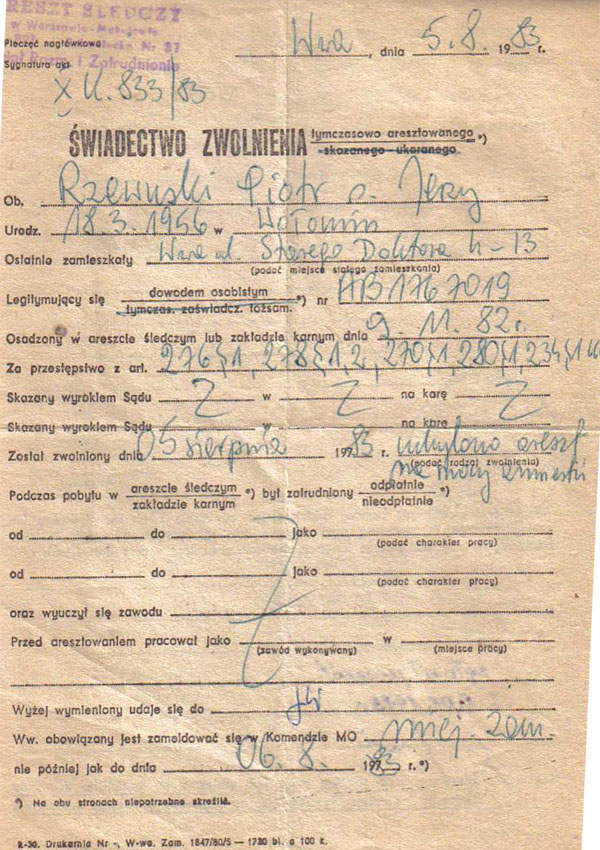 ARESZT ŚLEDCZY
w Warszawie-Mokotowie
Nr 37
Dział Rozm. i Zatrudnienia
Pieczęć nagłówkowa
Wwa, dnia 5.8. 1983 r.
Sygnatura akt
X K. 833/83
ŚWIADECTWO ZWOLNIENIA tymczasowo aresztowanego *)
skazanego - ukaranego
Ob. Rzewuski Piotr s. Jerzy
Urodz. 18.3.1956 w Wołomin
Ostatnio zamieszkały Wwa ul. Starego Doktora 4-13
(podać miejsce stałego zamieszkania)
Legitymujący się dowodem osobistym *) nr AB1767019
tymczas. zaświadcz. tożsam.
Osadzony w areszcie śledczym lub zakładzie karnym dnia 9.11.82r.
Za przestępstwo z art. 276§1, 278§1,2, 270§1, 280§1, 234§1 kk
Skazany wyrokiem Sądu Z w Z na karę Z
Skazany wyrokiem Sądu w na karę
Został zwolniony dnia 05 sierpnia 1983 r. uchylono areszt
na mocy amnestii
(podać rodzaj zwolnienia)
Podczas pobytu w areszcie śledczym *) był zatrudniony odpłatnie *)
zakładzie karnym nieodpłatnie
od do jako
(podać charakter pracy)
od do jako
(podać charakter pracy)
oraz wyuczył się zawodu
Przed aresztowaniem pracował jako w
(zawód wykonywany) (miejsce pracy)
Wyżej wymieniony udaje się do jw
Ww. obowiązany jest zameldować się w Komendzie MO miej. zam.
nie później jak do dnia 06.8. 1983 r.*)
*) Na obu stronach niepotrzebne skreślić.
R-30. Drukarnia Nr -, W-wa. Zam. 1847/80/5 — 1730 bl. a 100 k.